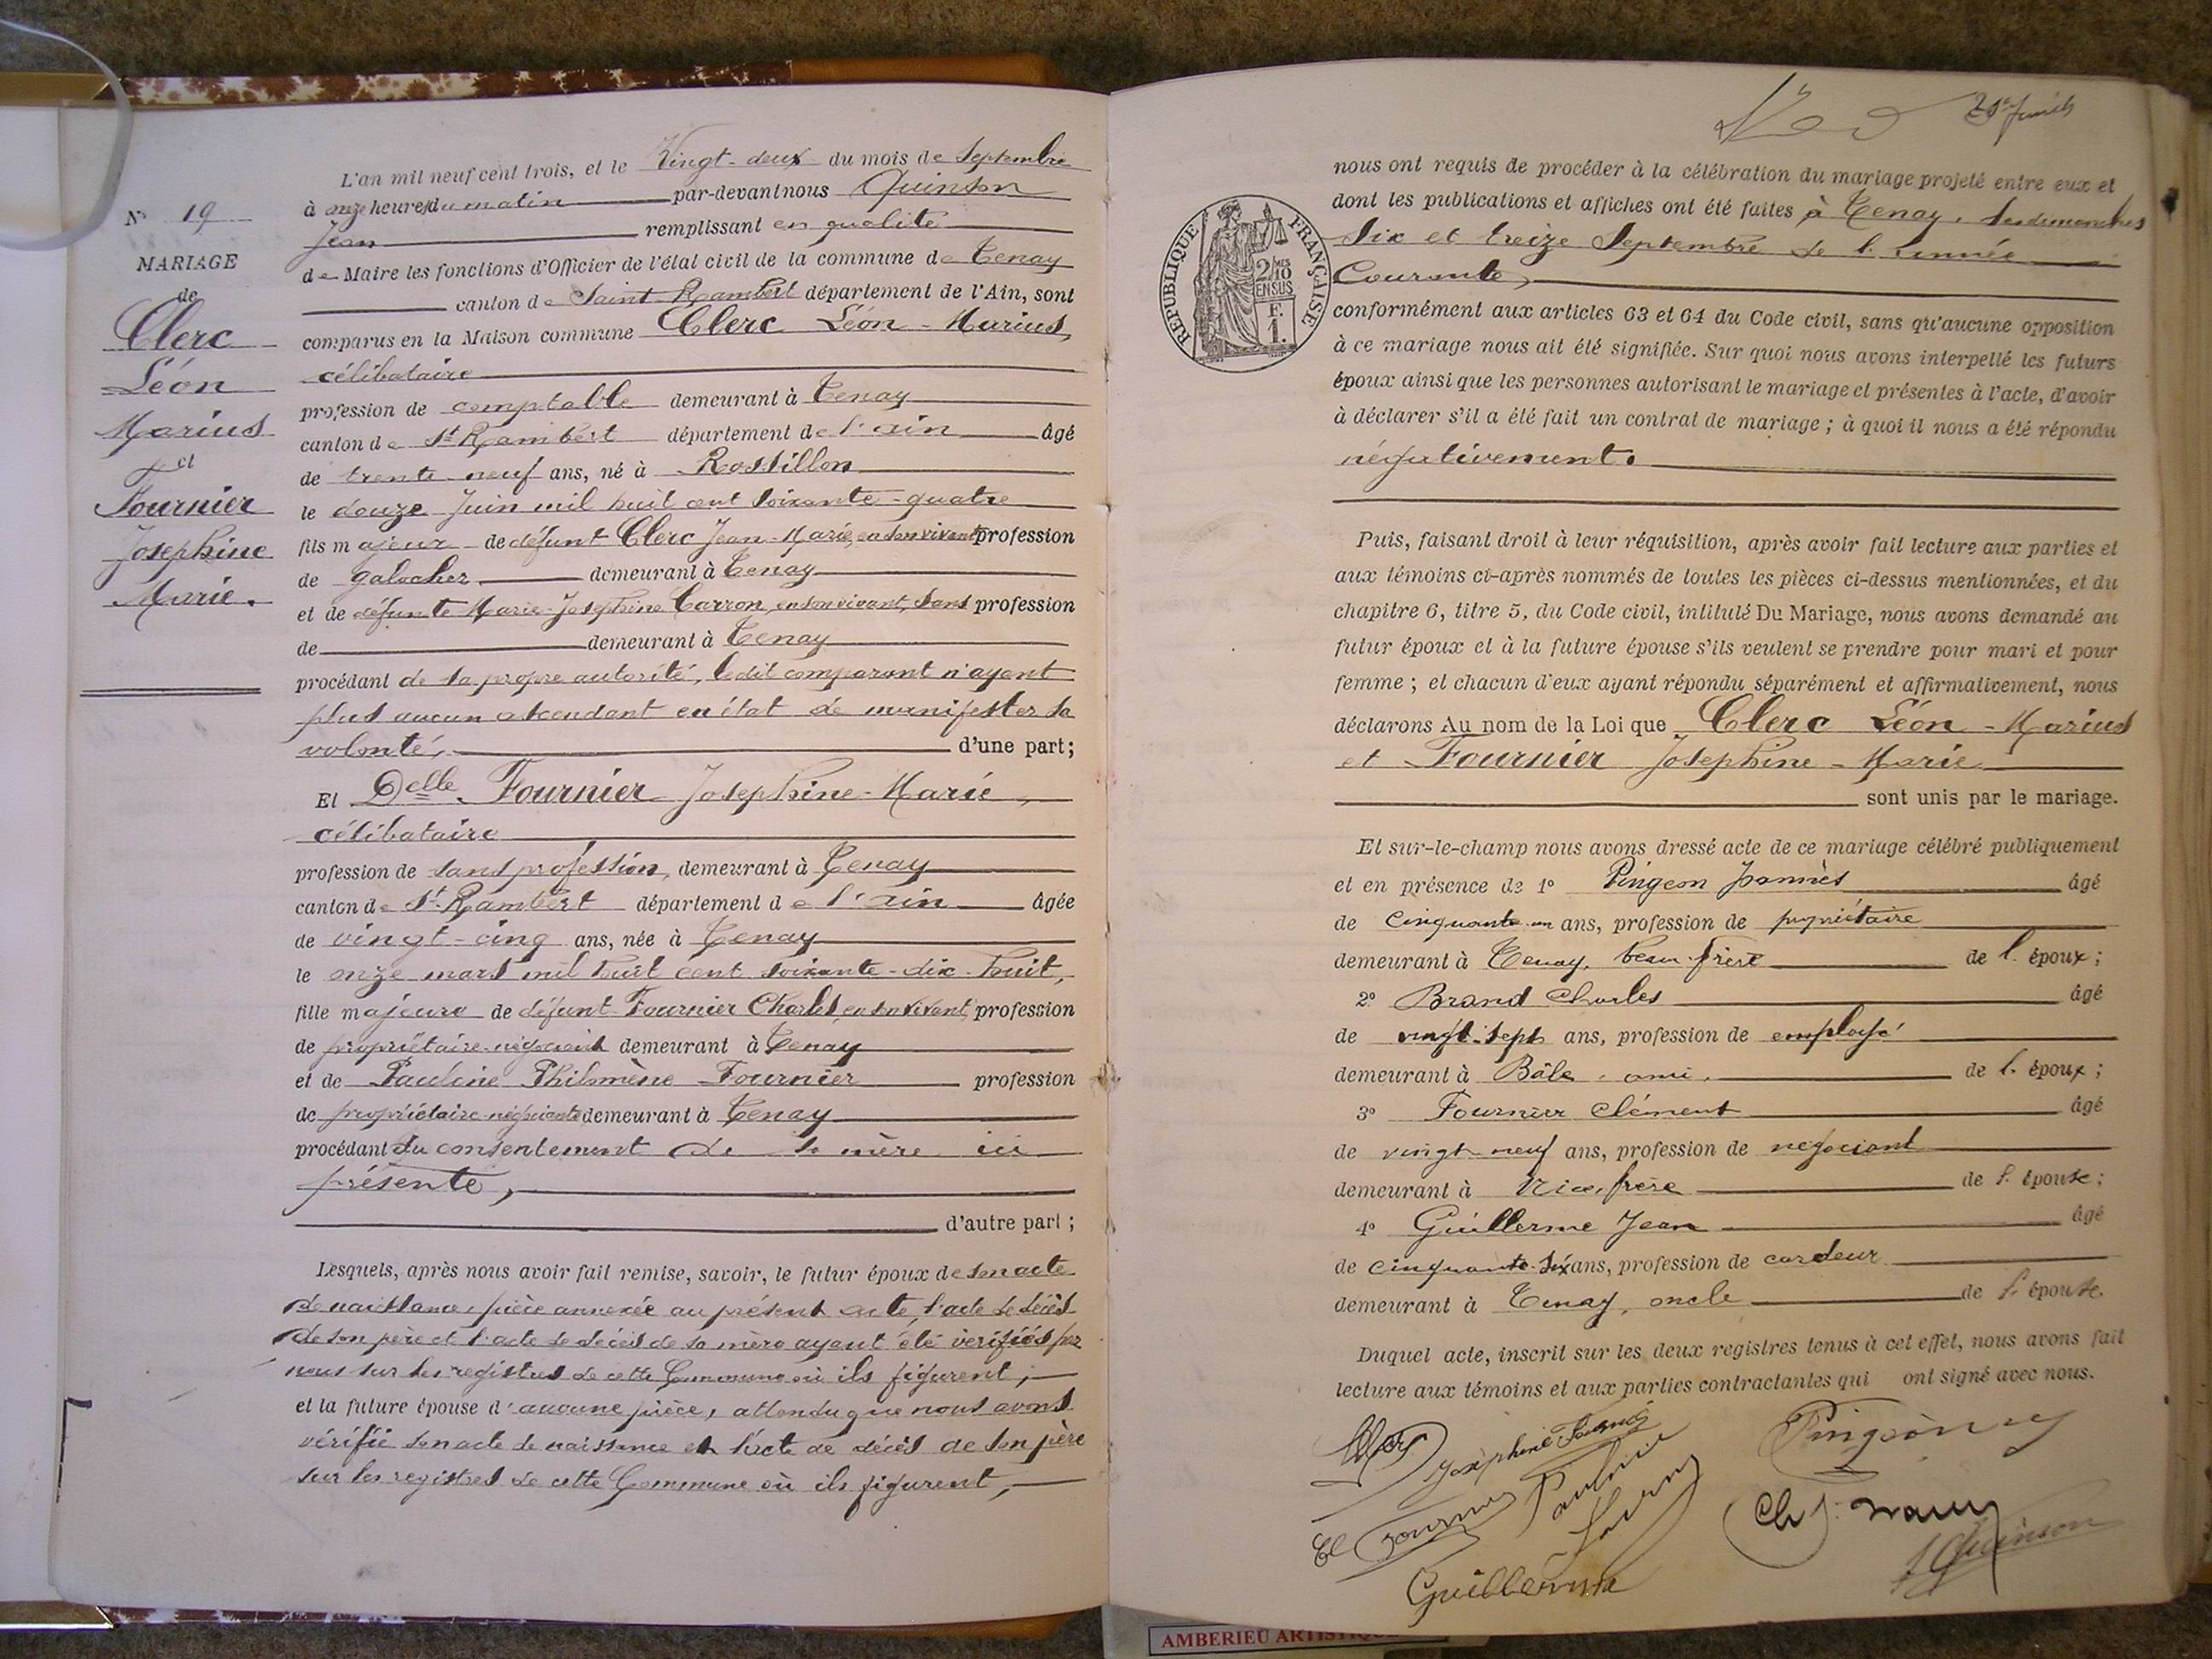 N° 19
MARIAGE
de
Clerc
Léon
Marius
et
Fournier
Josephine
Marie.
L'an mil neuf cent trois, et le Vingt-deux du mois de Septembre
à onze heures du matin par-devant nous Quinson
Jean remplissant en qualité
de Maire les fonctions d'Officier de l'état civil de la commune de Tenay
canton de Saint-Rambert département de l'Ain, sont
comparus en la Maison commune Clerc Léon-Marius,
célibataire
profession de comptable demeurant à Tenay
canton de St Rambert département de l'ain âgé
de trente-neuf ans, né à Rossillon
le douze Juin mil huit cent soixante-quatre
fils majeur de défunt Clerc Jean-Marie, en son vivant profession
de galocher demeurant à Tenay
et de défunte Marie-Josephine Carron, en son vivant, sans profession
de demeurant à Tenay
procédant de sa propre autorité, ledit comparant n'ayant
plus aucun ascendant en état de manifester sa
volonté, d'une part;
Et Delle Fournier Josephine-Marie,
célibataire
profession de sans profession, demeurant à Tenay
canton de St Rambert département de l'ain âgée
de vingt-cinq ans, née à Tenay
le onze mars mil huit cent soixante-dix-huit,
fille majeure de défunt Fournier Charles, en son vivant, profession
de propriétaire-négociant demeurant à Tenay
et de Pauline Philomène Fournier profession
de propriétaire-négociante demeurant à Tenay
procédant du consentement de sa mère ici
présente,
d'autre part;
Lesquels, après nous avoir fait remise, savoir, le futur époux de son acte
de naissance, pièce annexée au présent acte, l'acte de décès
de son père et l'acte de décès de sa mère ayant été vérifiés par
nous sur les registres de cette Commune où ils figurent;
et la future épouse d'aucune pièce, attendu que nous avons
vérifié son acte de naissance et l'acte de décès de son père
sur les registres de cette Commune où ils figurent,
nous ont requis de procéder à la célébration du mariage projeté entre eux et
dont les publications et affiches ont été faites à Tenay, les dimanches
six et treize Septembre de l'année
Courante,
RÉPUBLIQUE FRANÇAISE
2/10
EN SUS
F.
1.
conformément aux articles 63 et 64 du Code civil, sans qu'aucune opposition
à ce mariage nous ait été signifiée. Sur quoi nous avons interpellé les futurs
époux ainsi que les personnes autorisant le mariage et présentes à l'acte, d'avoir
à déclarer s'il a été fait un contrat de mariage; à quoi il nous a été répondu
négativement.
Puis, faisant droit à leur réquisition, après avoir fait lecture aux parties et
aux témoins ci-après nommés de toutes les pièces ci-dessus mentionnées, et du
chapitre 6, titre 5, du Code civil, intitulé Du Mariage, nous avons demandé au
futur époux et à la future épouse s'ils veulent se prendre pour mari et pour
femme; et chacun d'eux ayant répondu séparément et affirmativement, nous
déclarons Au nom de la Loi que Clerc Léon-Marius
et Fournier Josephine-Marie
sont unis par le mariage.
Et sur-le-champ nous avons dressé acte de ce mariage célébré publiquement
et en présence de 1° Pingeon Joannès âgé
de cinquante-un ans, profession de propriétaire
demeurant à Tenay, beau-frère de l'époux;
2° Brand Charles âgé
de vingt-sept ans, profession de employé
demeurant à Bâle, ami, de l'époux;
3° Fournier Clément âgé
de vingt-neuf ans, profession de négociant
demeurant à frère de l'épouse;
4° Guillerme Jean âgé
de cinquante-six ans, profession de cardeur
demeurant à Tenay, oncle de l'épouse.
Duquel acte, inscrit sur les deux registres tenus à cet effet, nous avons fait
lecture aux témoins et aux parties contractantes qui ont signé avec nous.
Josephine Fournier
Pingeon
Cl Fournier
Pauline
Guillerme
J Quinson
AMBERIEU